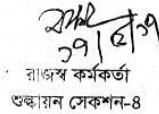 ১৭/৫/১৭
রাজস্ব কর্মকর্তা
শুল্কায়ন সেকশন-৪